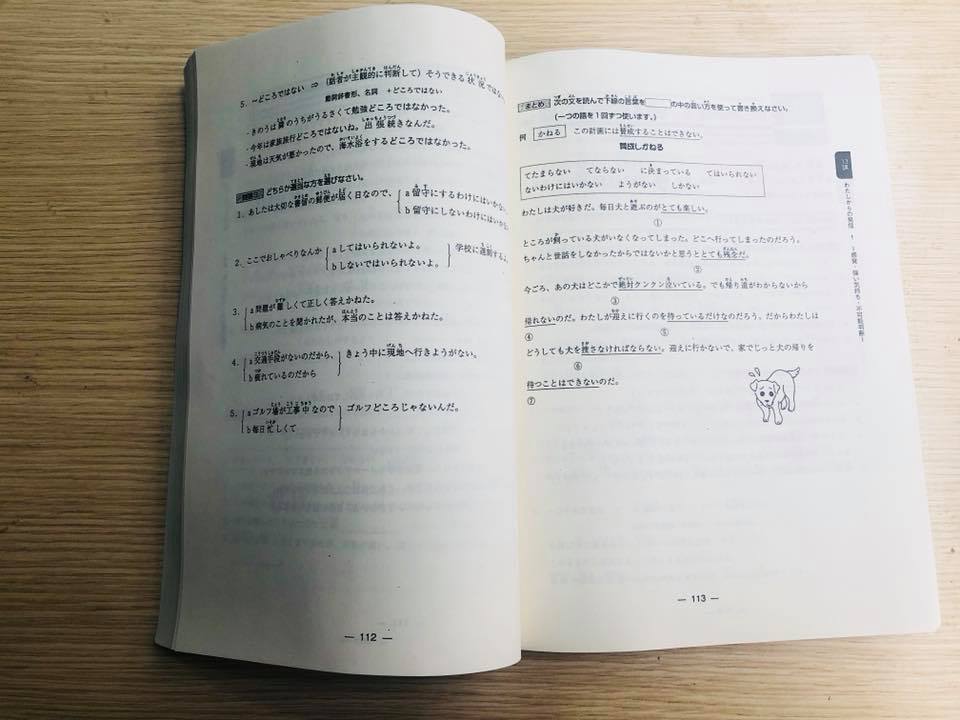 5. ~どころではない ⇒ (話者が主観的に判断して)そうできる状況ではない
動詞辞書形、名詞 +どころではない
・きのうは隣のうちがうるさくて勉強どころではなかった。
・今年は家族旅行どころではないね。出張続きなんだ。
・現地は天気が悪かったので、海水浴をするどころではなかった。
どちらか適当な方を選びなさい。
1. あしたは大切な書留の郵便が届く日なので、
a 留守にするわけにはいかない
b 留守にしないわけにはいかない
2. ここでおしゃべりなんか
a してはいられないよ。
b しないではいられないよ。
学校に遅刻するよ
3. a 問題が難しくて正しく答えかねた。
b 病気のことを聞かれたが、本当のことは答えかねた。
4. a 交通手段がないのだから、
b 疲れているのだから
きょう中に現地へ行きようがない。
5. a ゴルフ場が工事中なので
b 毎日忙しくて
ゴルフどころじゃないんだ。
— 112 —
まとめ 次の文を読んで下線の言葉を の中の言い方を使って書き換えなさい。
(一つの語を1回ずつ使います。)
例 かねる この計画には賛成することはできない。
賛成しかねる
てたまらない てならない に決まっている てはいられない
ないわけにはいかない ようがない しかない
わたしは犬が好きだ。毎日犬と遊ぶのがとても楽しい。
①
ところが飼っている犬がいなくなってしまった。どこへ行ってしまったのだろう。
ちゃんと世話をしなかったからではないかと思うととても残念だ。
②
今ごろ、あの犬はどこかで絶対クンクン泣いている。でも帰り道がわからないから
③
帰れないのだ。わたしが迎えに行くのを待っているだけなのだろう。だからわたしは
④ ⑤
どうしても犬を捜さなければならない。迎えに行かないで、家でじっと犬の帰りを
⑥
待つことはできないのだ。
⑦
— 113 —